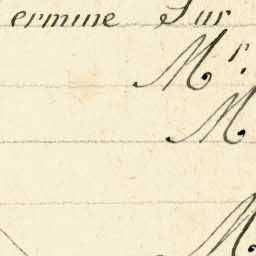 ermine Sur
Mr.
M
M